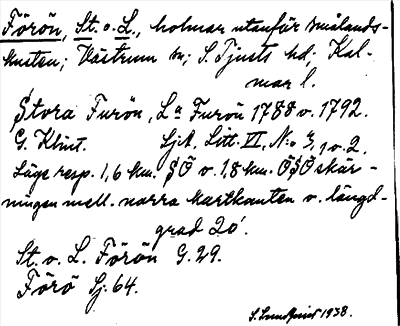 Förön, St. o. L., holmar utanför Smålands-
kusten; Västrum sn; S. Tjusts hd; Kal-
mar l.
Stora Furön, L^a Furön 1788 o. 1792.
G. Klint. Sjk. Litt. VI, N:o 3, 1 o. 2.
Läge resp. 1,6 km. SÖ o. 1,8 km. ÖSÖ skär-
ningen mell. norra kartkanten o. längd-
grad 20'.
St. o. L. Förön G. 29.
Förö Sj. 64.
S. Lundqvist 1938.